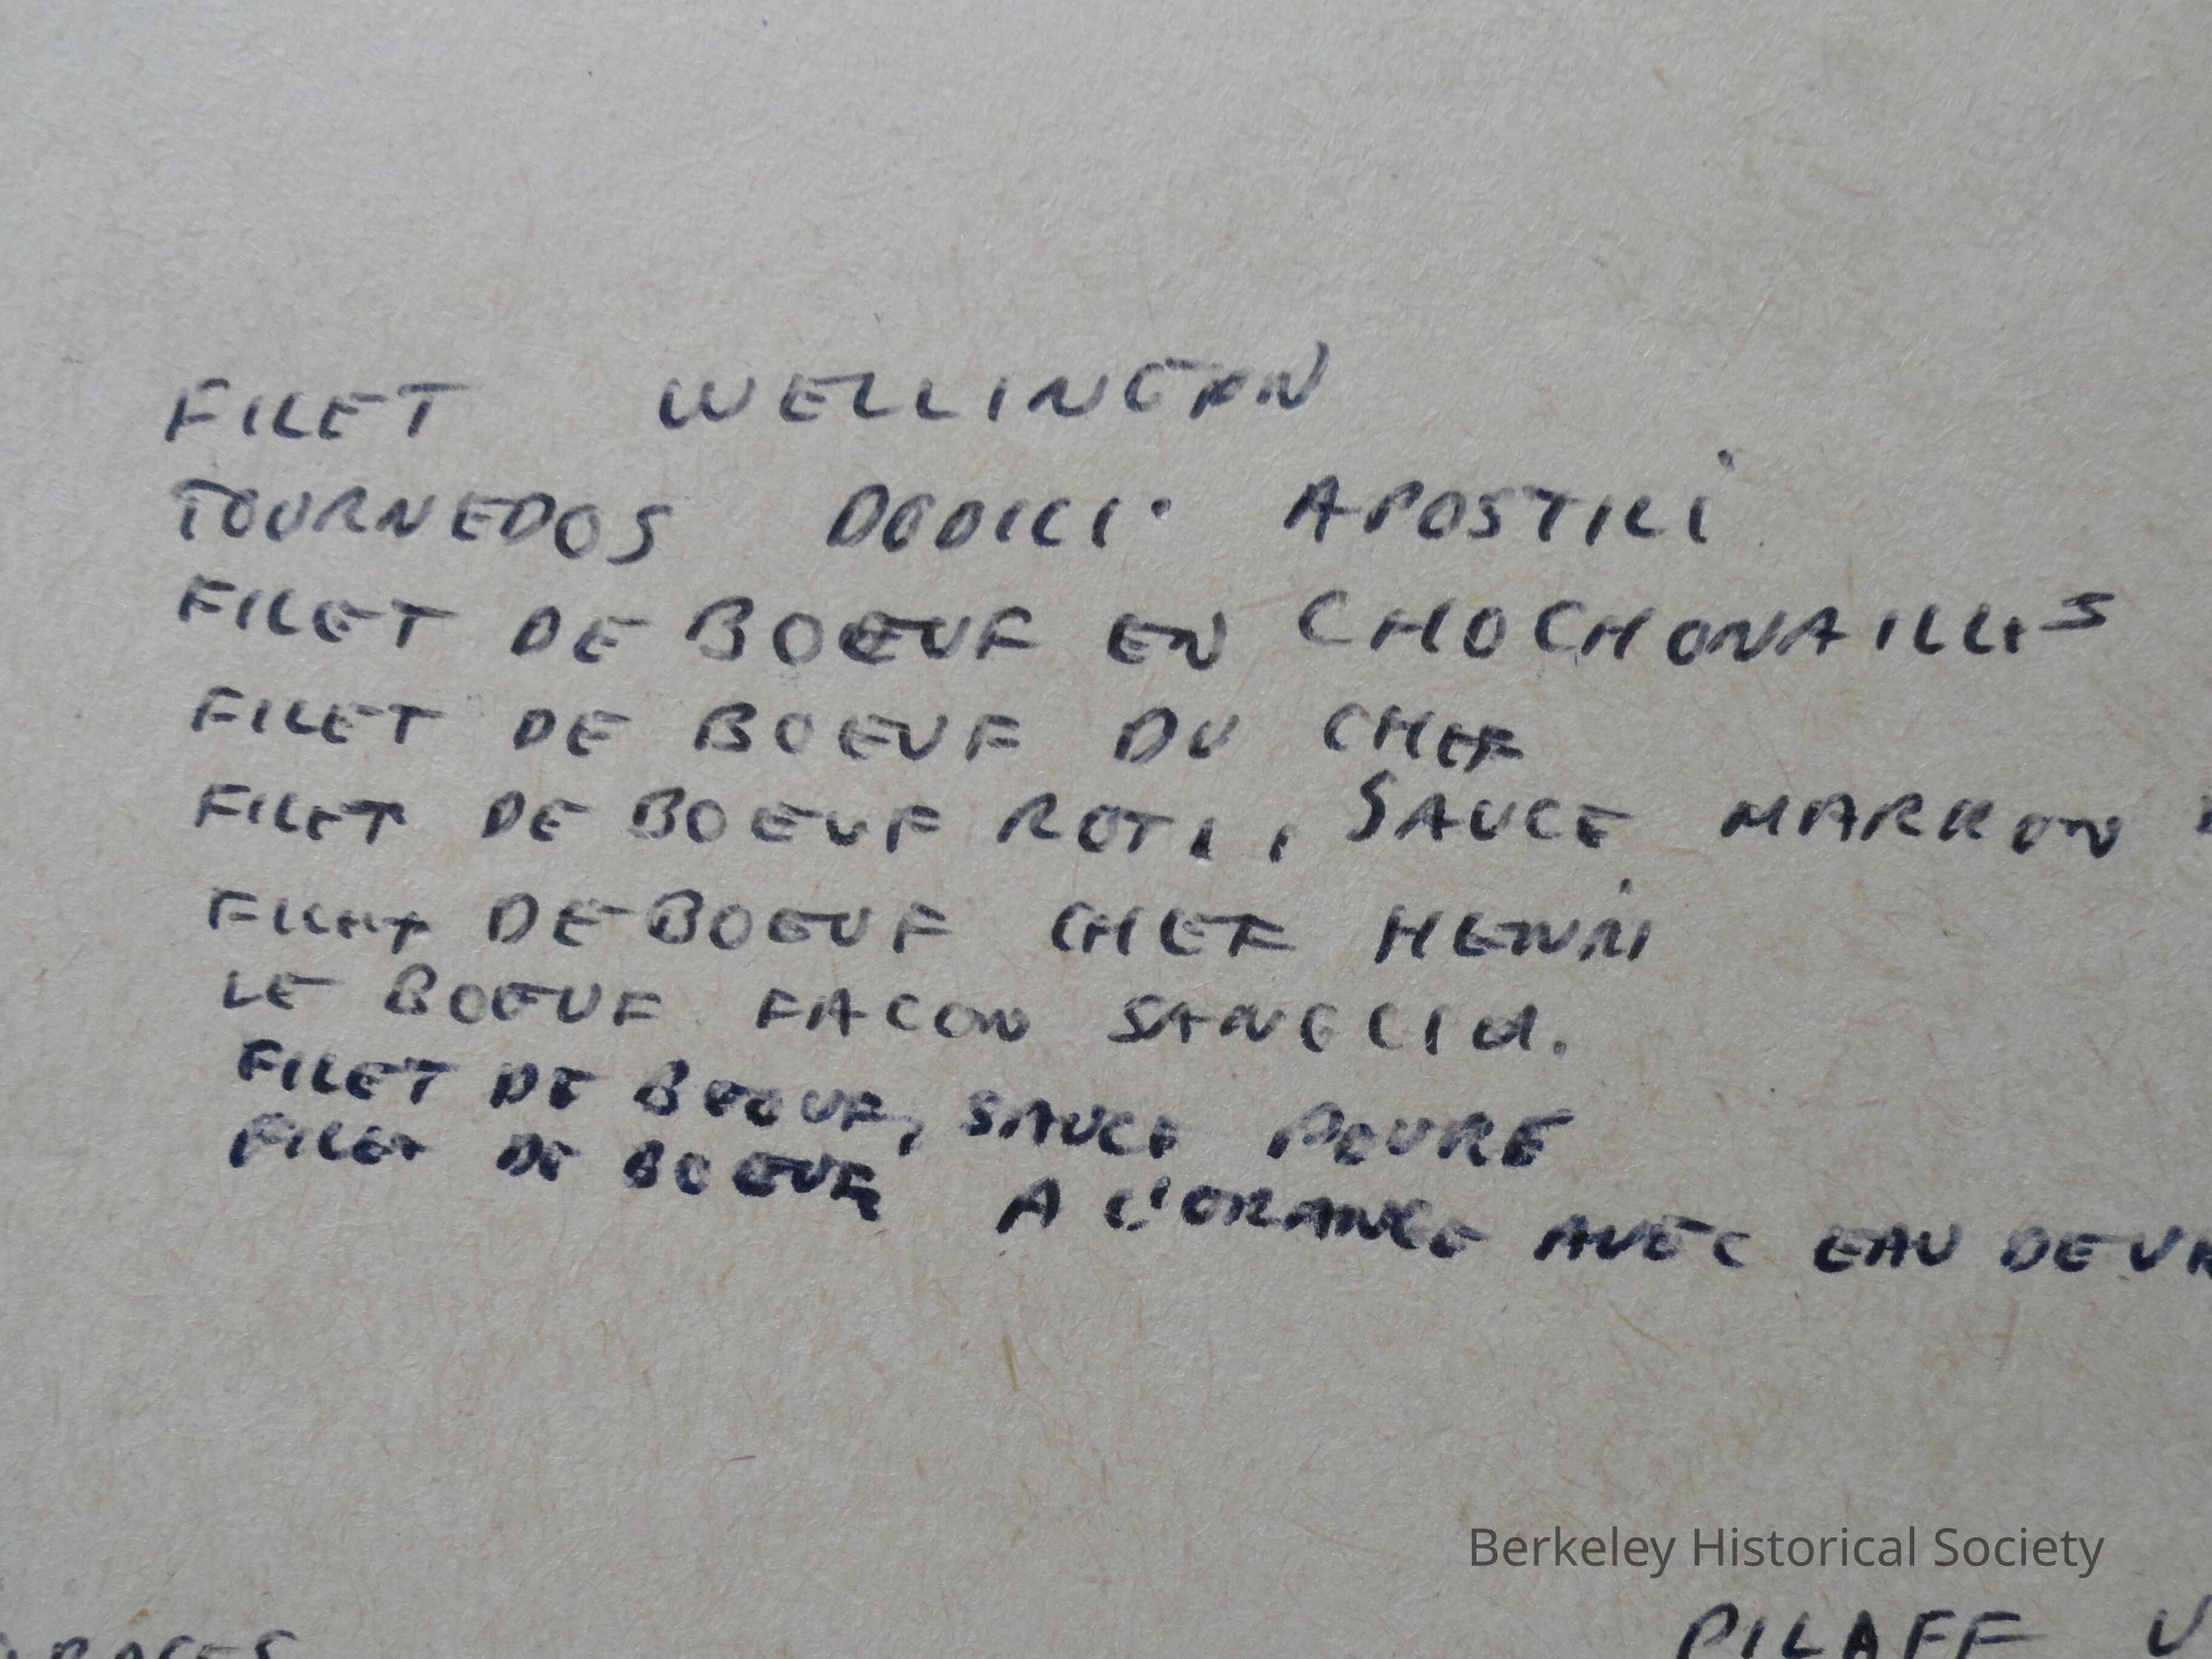 FILET WELLINGTON
TOURNEDOS DODICI APOSTILI
FILET DE BOEUF EN CHOCHONAILLES
FILET DE BOEUF DU CHEF
FILET DE BOEUF ROTI, SAUCE MARRON
FILET DE BOEUF CHEF HENRI
LE BOEUF FACON
FILET DE BOEUF, SAUCE POURE
FILET DE BOEUF A L'ORANGE AVEC EAU DE
Berkeley Historical Society
PILAFF